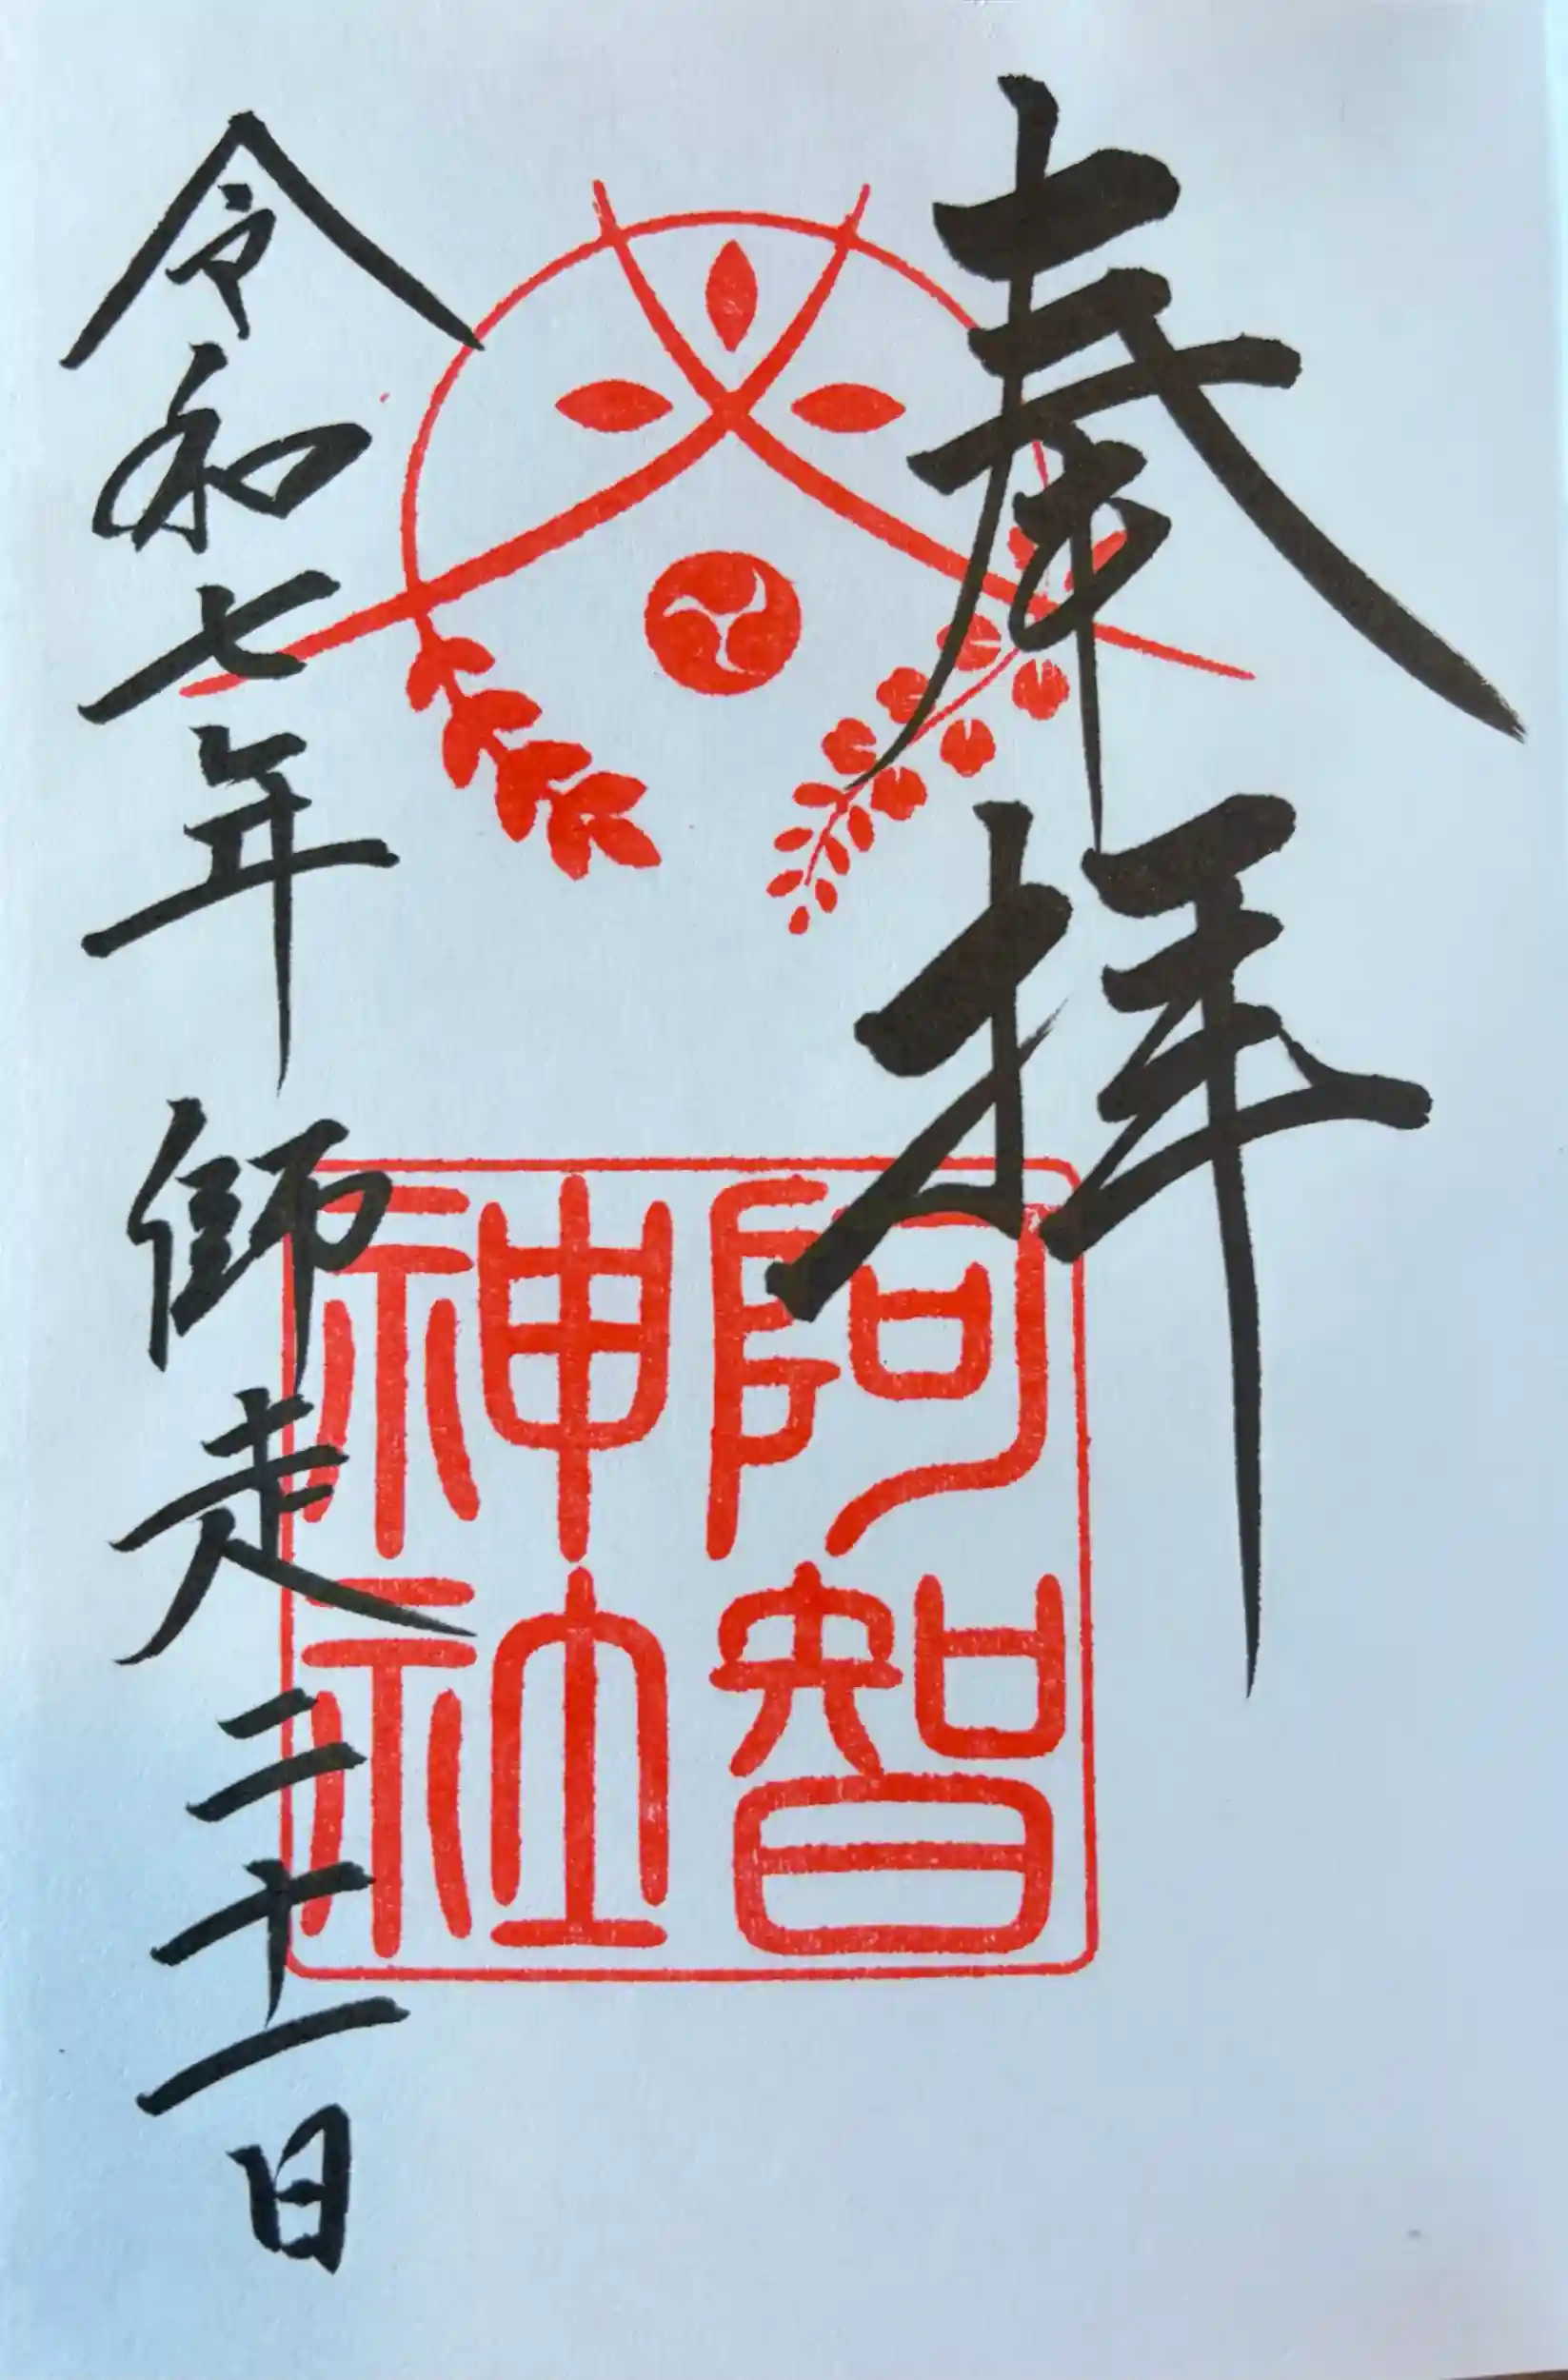 奉拝
阿智
神社
令和七年 師走 二十一日